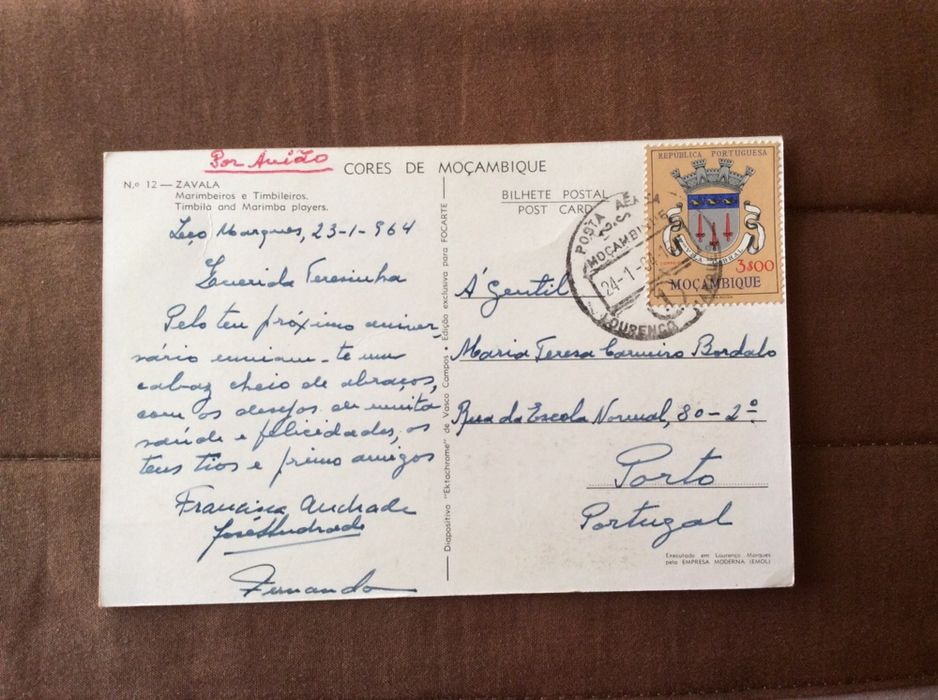 Por Avião
CORES DE MOÇAMBIQUE
N.º 12 — ZAVALA
Marimbeiros e Timbileiros.
Timbila and Marimba players.
Lço Marques, 23-1-964
Querida Teresinha
Pelo teu próximo aniver-
sário enviam-te um
cabaz cheio de abraços,
com os desejos de muita
saúde e felicidades, os
teus tios e primo amigos
Francisca Andrade
José Andrade
Fernando
Diapositivo "Ektachrome" de Vasco Campos • Edição exclusiva para FOCARTE
BILHETE POSTAL
POST CARD
REPÚBLICA PORTUGUESA
3$00
MOÇAMBIQUE
POSTA
MOÇAMBIQUE
24-1-
LOURENÇO
À Gentil
Maria Teresa Carneiro Bordalo
Rua da Escola Normal, 80-2º
Porto
Portugal
Executado em Lourenço Marques
pela EMPRESA MODERNA (EMOL)